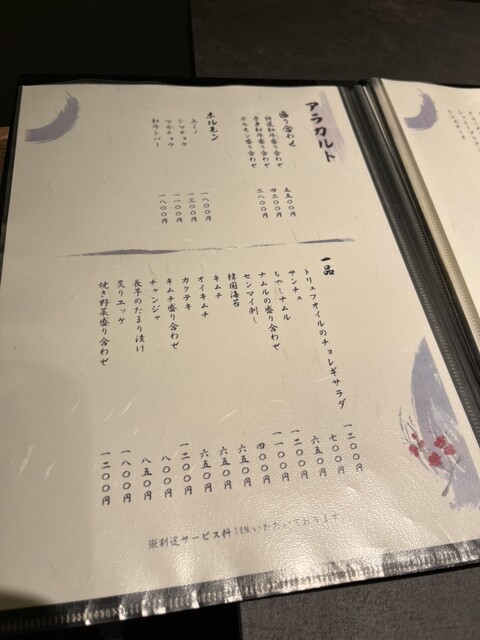 アラカルト
盛り合わせ
特選和牛盛り合わせ 五五〇〇円
赤身和牛盛り合わせ 四二〇〇円
ホルモン盛り合わせ 二八〇〇円
ホルモン
上ミノ 一八〇〇円
シマチョウ 一三〇〇円
マルチョウ 一一〇〇円
和牛レバー 一八〇〇円
一品
トリュフオイルのチョレギサラダ 一二〇〇円
サンチュ 七〇〇円
もやしナムル 六五〇円
ナムルの盛り合わせ 一二〇〇円
センマイ刺し 一一〇〇円
韓国海苔 四〇〇円
キムチ 六五〇円
オイキムチ 六五〇円
カクテキ 六五〇円
キムチ盛り合わせ 一二〇〇円
チャンジャ 八〇〇円
長芋のたまり漬け 八五〇円
炙りエッケ 一八〇〇円
焼き野菜盛り合わせ 一二〇〇円
※別途サービス料10%いただいております